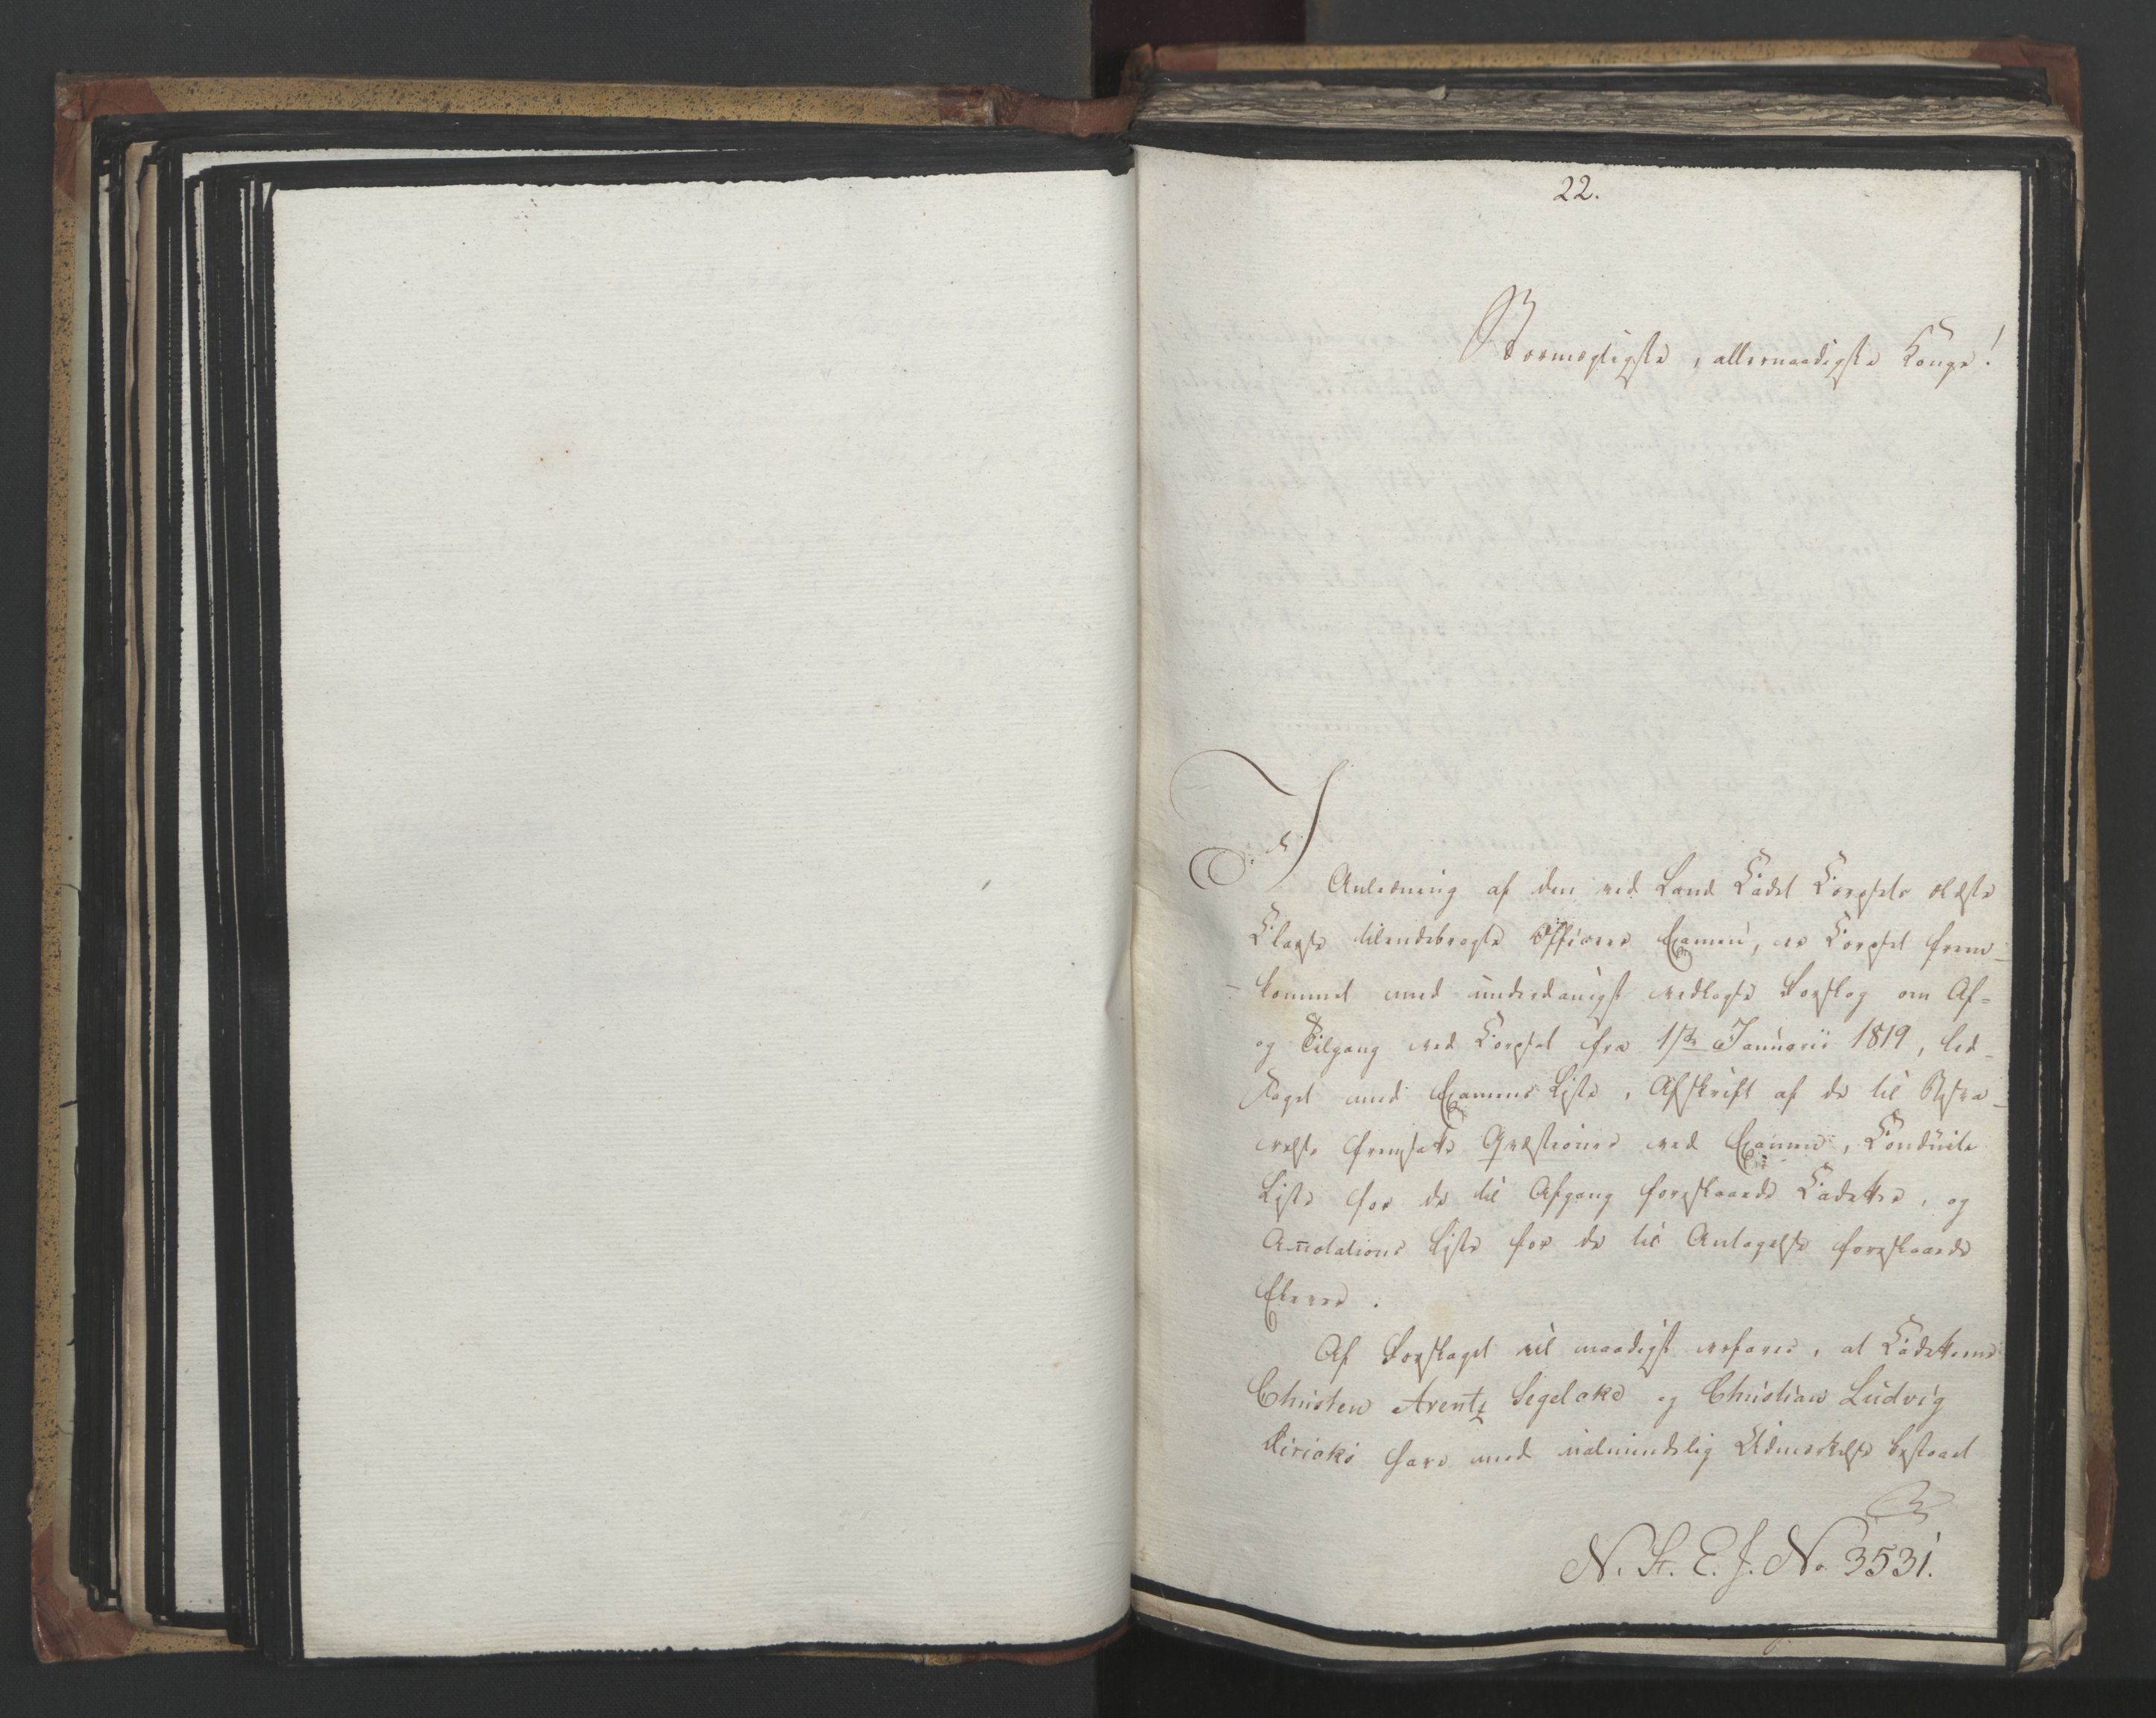 22.
Stormægtigste, allernaadigste Konge!
I
Anledning af den ved Land Cadet Corpsets ældste
Classe tilendebragte Officeers Examen, er Corpset frem-
kommet med underdanigst vedlagte Forslag om Af-
og Tilgang ved Corpset fra 1ste Januarii 1819, led-
saget med Examens Liste, Afskrift af de til Besva-
relse fremsatte Qvæstioner ved Examen, Conduite
Liste for de til Afgang foreslaaede Cadetter, og
Anotations Liste for de til Antagelse foreslaaede
Elever.
Af Forslaget vil naadigst erfares, at Cadetterne
Christen Arentz Segelcke og Christian Ludvig
Diricks have med udmindelig Udmærkelse bestaaet
N. St. E. J. No. 3531.